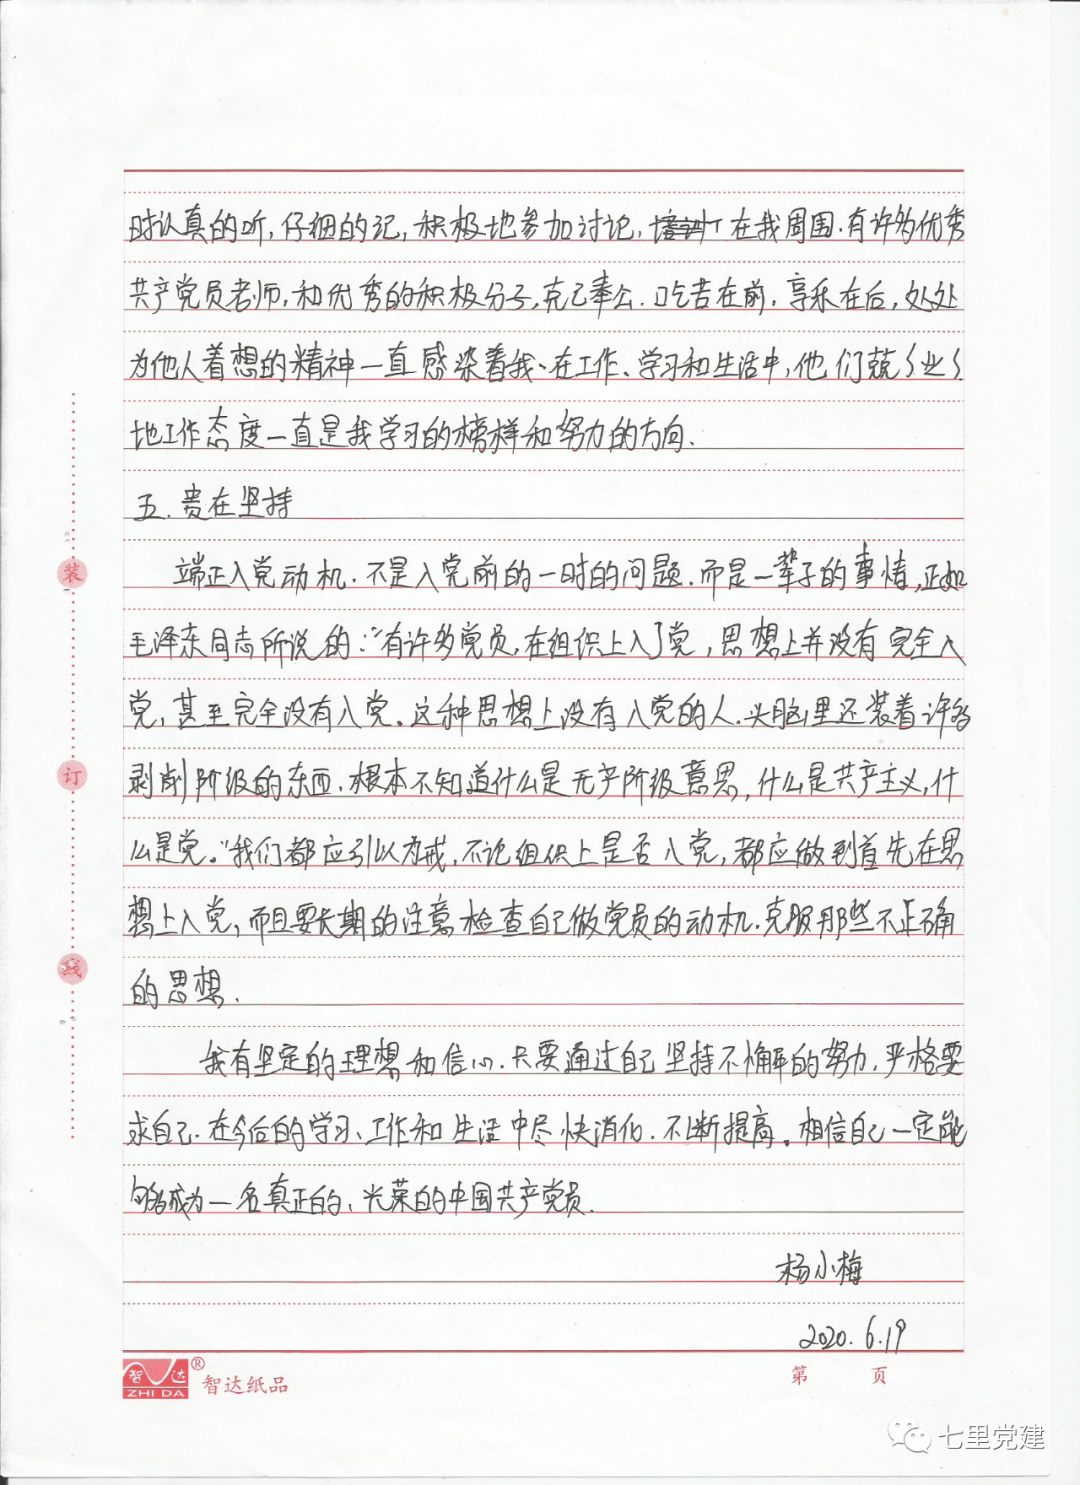 时认真的听,仔细的记,积极地参加讨论,在我周围.有许多优秀
共产党员老师,和优秀的积极分子,克己奉公.吃苦在前.享乐在后,处处
为他人着想的精神一直感染着我、在工作、学习和生活中,他们兢〈业〈
地工作态度一直是我学习的榜样和努力的方向.
五.贵在坚持
端正入党动机.不是入党前的一时的问题.而是一辈子的事情,正如
毛泽东同志所说的:"有许多党员,在组织上入了党,思想上并没有完全入
党,甚至完全没有入党。这种思想上没有入党的人.头脑里还装着许多
剥削阶级的东西.根本不知道什么是无产阶级意思,什么是共产主义,什
么是党。"我们都应引以为戒,不论组织上是否入党,都应做到首先在思
想上入党,而且要长期的注意检查自己做党员的动机.克服那些不正确
的思想.
我有坚定的理想和信心.只要通过自己坚持不懈的努力.严格要
求自己.在今后的学习、工作和生活中尽快消化.不断提高。相信自己一定能
够成为一名真正的、光荣的中国共产党员.
杨小梅
2020.6.19
装
订
线
智达
ZHI DA
®
智达纸品
第 页
七里党建